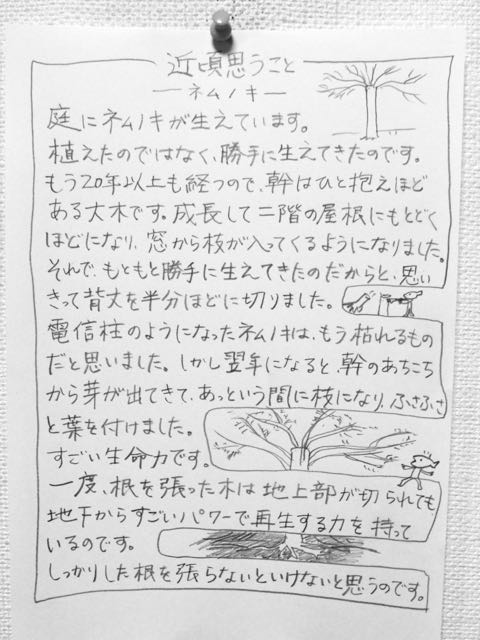 近頃思うこと
―ネムノキ―
庭にネムノキが生えています。
植えたのではなく、勝手に生えてきたのです。
もう20年以上も経つので、幹はひと抱えほど
ある大木です。成長して二階の屋根にもとどく
ほどになり、窓から枝が入ってくるようになりました。
それで、もともと勝手に生えてきたのだからと、思い
きって背丈を半分ほどに切りました。
電信柱のようになったネムノキは、もう枯れるもの
だと思いました。しかし翌年になると、幹のあちこち
から芽が出てきて、あっという間に枝になり、ふさふさ
と葉を付けました。
すごい生命力です。
一度、根を張った木は地上部が切られても、
地下からすごいパワーで再生する力を持って
いるのです。
しっかりした根を張らないといけないと思うのです。